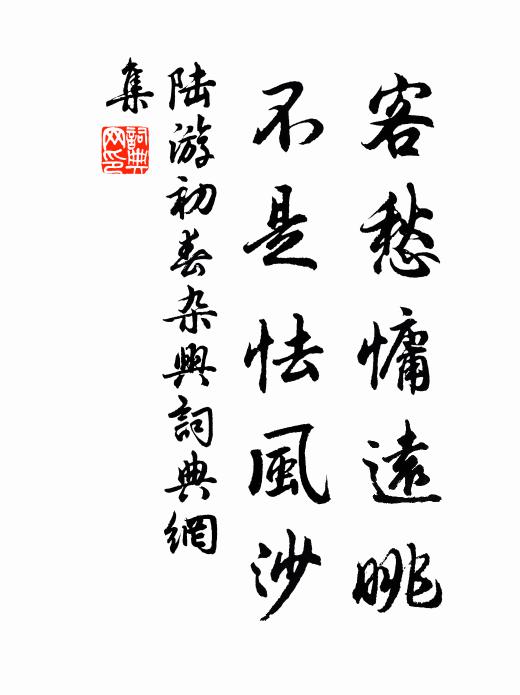 客愁慵遠眺
不是怯風沙
陆游初春杂興詞典網
集
詞典網印